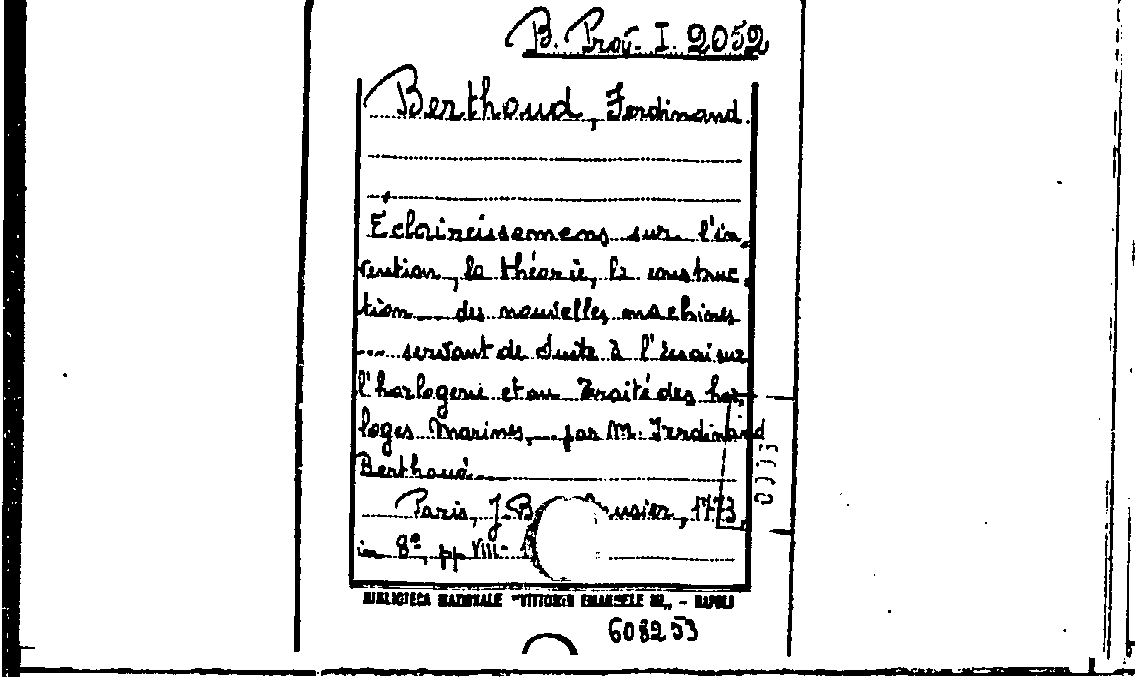 B. Prov. I. 2052
Berthoud, Ferdinand
Éclaircissemens sur l'in-
vention, la théorie, la construc-
tion ... des nouvelles machines
... servant de suite à l'Essai sur
l'horlogerie et au Traité des hor-
loges Marines, ... par M. Ferdinand
Berthoud ...
Paris, J. B. usier, 1773,
in 8º, pp VIII-1
BIBLIOTECA NAZIONALE "VITTORIO EMANUELE III" - NAPOLI
608253